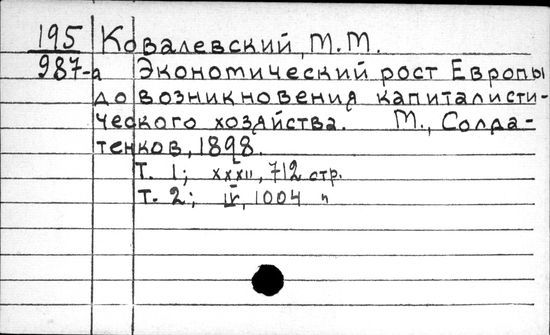 195 Ковалевский, М.М.
987-а Экономический рост Европы
до возникновения капиталисти-
ческого хозяйства. М., Солда-
тенков, 1898.
Т. 1; XXXII, 712 стр.
Т. 2; IV, 1004 "